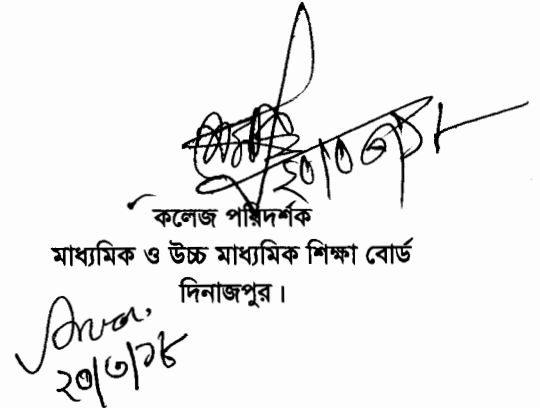 ২০/৩/১৮
কলেজ পরিদর্শক
মাধ্যমিক ও উচ্চ মাধ্যমিক শিক্ষা বোর্ড
দিনাজপুর।
২০/৩/১৮